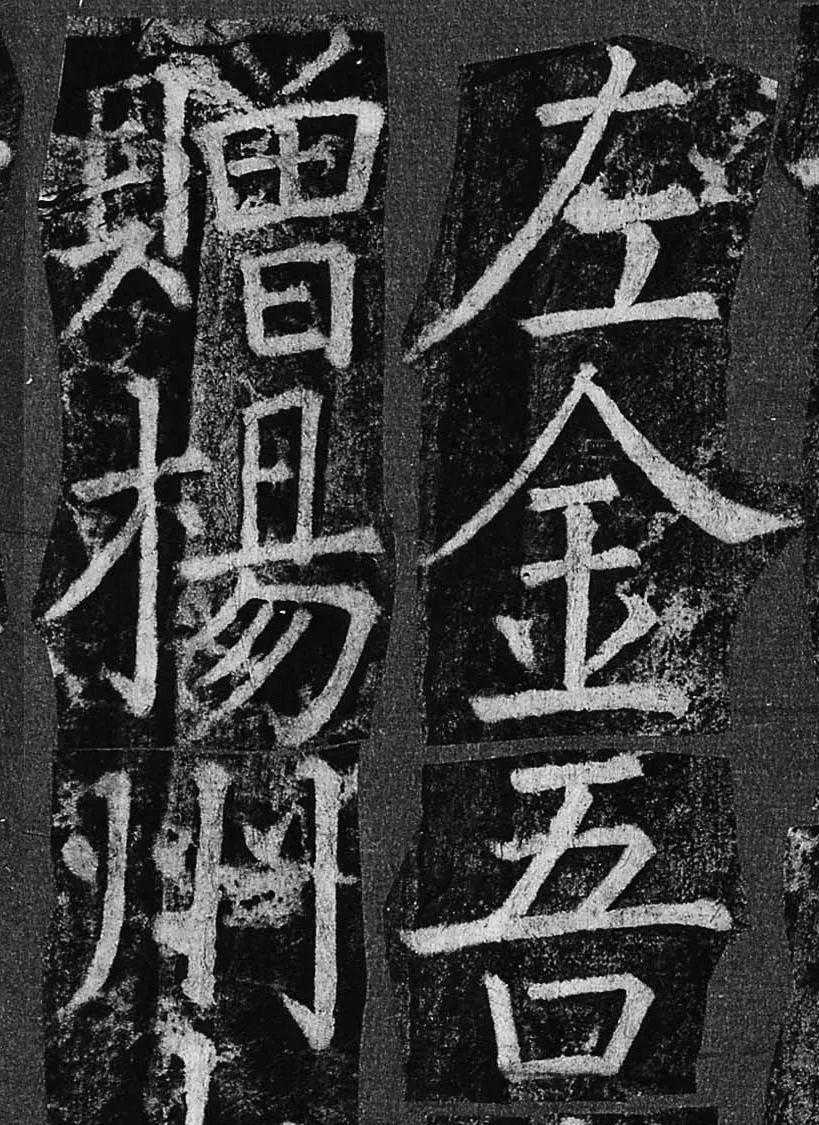 左金吾
贈楊州